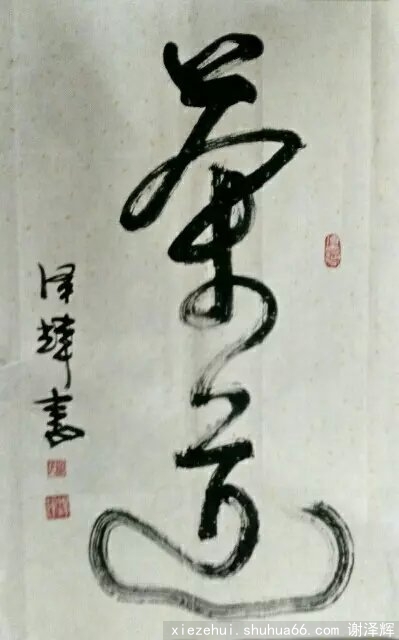 茶道
泽辉书
xiezehui.shuhua66.com 谢泽辉